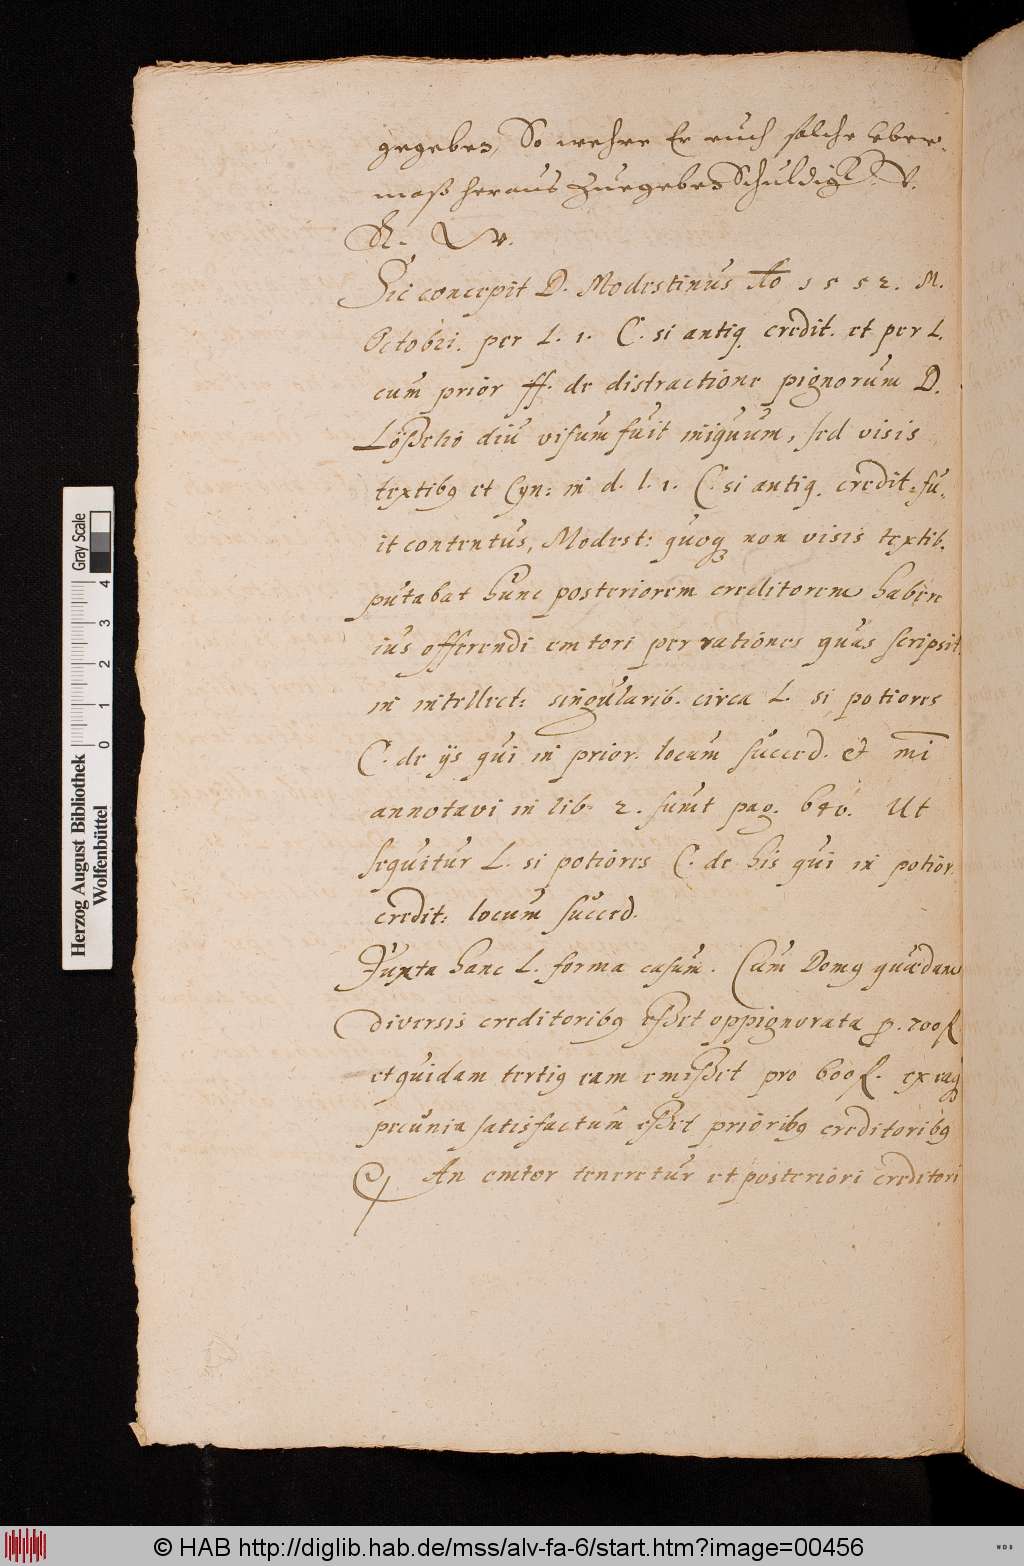 gegeben, So wehre Er euch solche uber-
maß heraus Zuegeben Schuldig. V.
R. W.
Sic concepit D. Modestinus Ao 1552. M.
Octobri. per L. 1. C. si antiq. credit. et per L.
cum prior ff. de distractione pignorum D.
Lößelio diu visum fuit iniquum, sed visis
textibq et Cyn: in d. l. 1. C. si antiq. credit: fu-
it contentus, Modest: quoq non visis textib.
putabat hunc posteriorem creditorem habere
ius offerendi emtori per rationes quas scripsit
in intellect: singularib. circa L. si potiores
C. de ijs qui in prior. locum succed. et
annotavi in lib. 2. pag. 640. Ut
sequitur L. si potiores C. de his qui in potior.
credit: locum succed.
Juxta hanc L. forma casum. Cum Domq quædam
diversis creditoribq eßet oppignorata p. 700 fl
et quidam tertiq eam emißet pro 600 fl. ex eaq
pecunia satisfactum eßet prioribq creditoribq
Q An emtor teneretur et posteriori creditori
Herzog August Bibliothek
Wolfenbüttel
0 1 2 3 4
Gray Scale
© HAB http://diglib.hab.de/mss/alv-fa-6/start.htm?image=00456
WDB